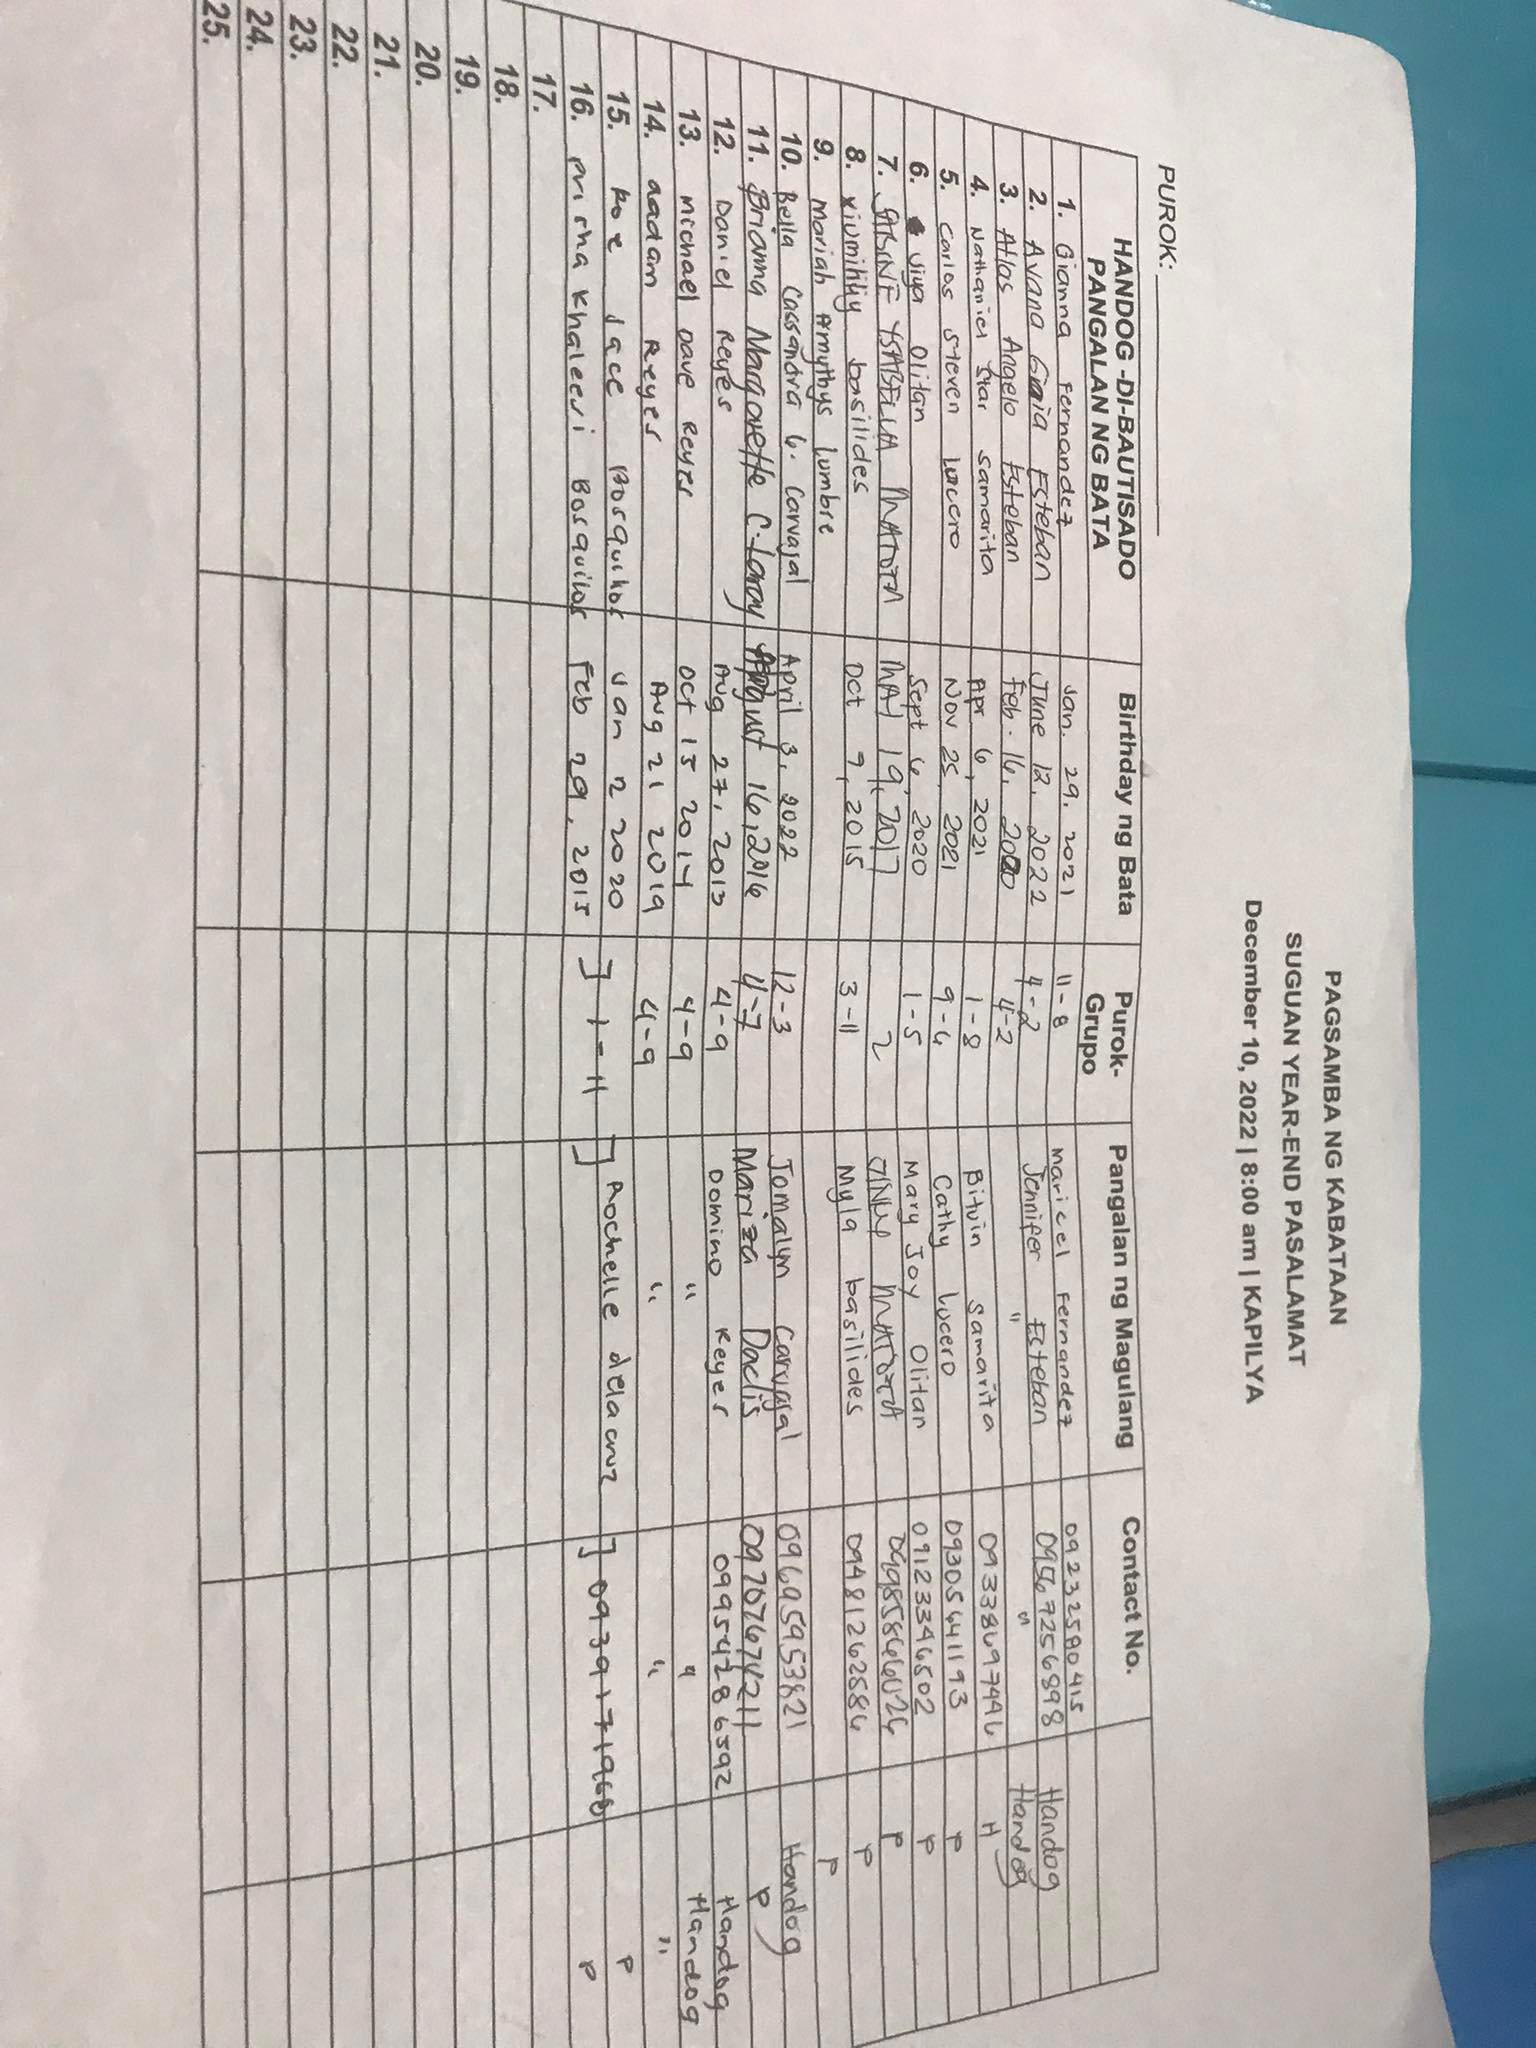 PAGSAMBA NG KABATAAN
SUGUAN YEAR-END PASALAMAT
December 10, 2022 | 8:00 am | KAPILYA
PUROK:
HANDOG -DI-BAUTISADO PANGALAN NG BATA Birthday ng Bata Purok-Grupo Pangalan ng Magulang Contact No.
1. Gianna Fernandez Jan. 29. 2021 11-8 Maricel Fernandez 09232580415
2. Avana Esteban June 12, 2022 4-2 Jennifer Esteban 09567256898 Handog
3. Atlas Angelo Esteban Feb. 16, 2020 4-2 " " Handog
4. Nathaniel Star Samarita Apr 6, 2021 1-8 Bituin Samarita 09338697446 H
5. Carlos Steven Lucero Nov 25 2021 9-6 Cathy Lucero 09305641193 P
6. Jiya Olitan Sept 6, 2020 1-5 Mary Joy Olitan 09123346502 P
7. SABINE YSABELLA MAY 19, 2017 2 09985866026 P
8. basilides Oct 9, 2015 3-11 Myla basilides 09481262586 P
9. Mariah Amythys Lumbre P
10. Bella Cassandra G. Carvajal April 3, 2022 12-3 Jomalyn Carvajal 09695953821 Handog
11. Brianna Margarette C. August 16, 2016 4-7 Mariza Daclis 09707674211 P
12. Daniel Reyes Aug 27, 2013 4-9 Domino Reyes 09954286592 Handog
13. Michael Dave Reyes Oct 15 2014 4-9 " " Handog
14. aadam Reyes Aug 21 2019 4-9 " " "
15. Jace Bosquilos Jan 12 2020 ] 1-11 ] Rochelle dela cruz ] 0939171968 P
16. Prisha Khaleesi Bosquilos Feb 29, 2015 P
17.
18.
19.
20.
21.
22.
23.
24.
25.